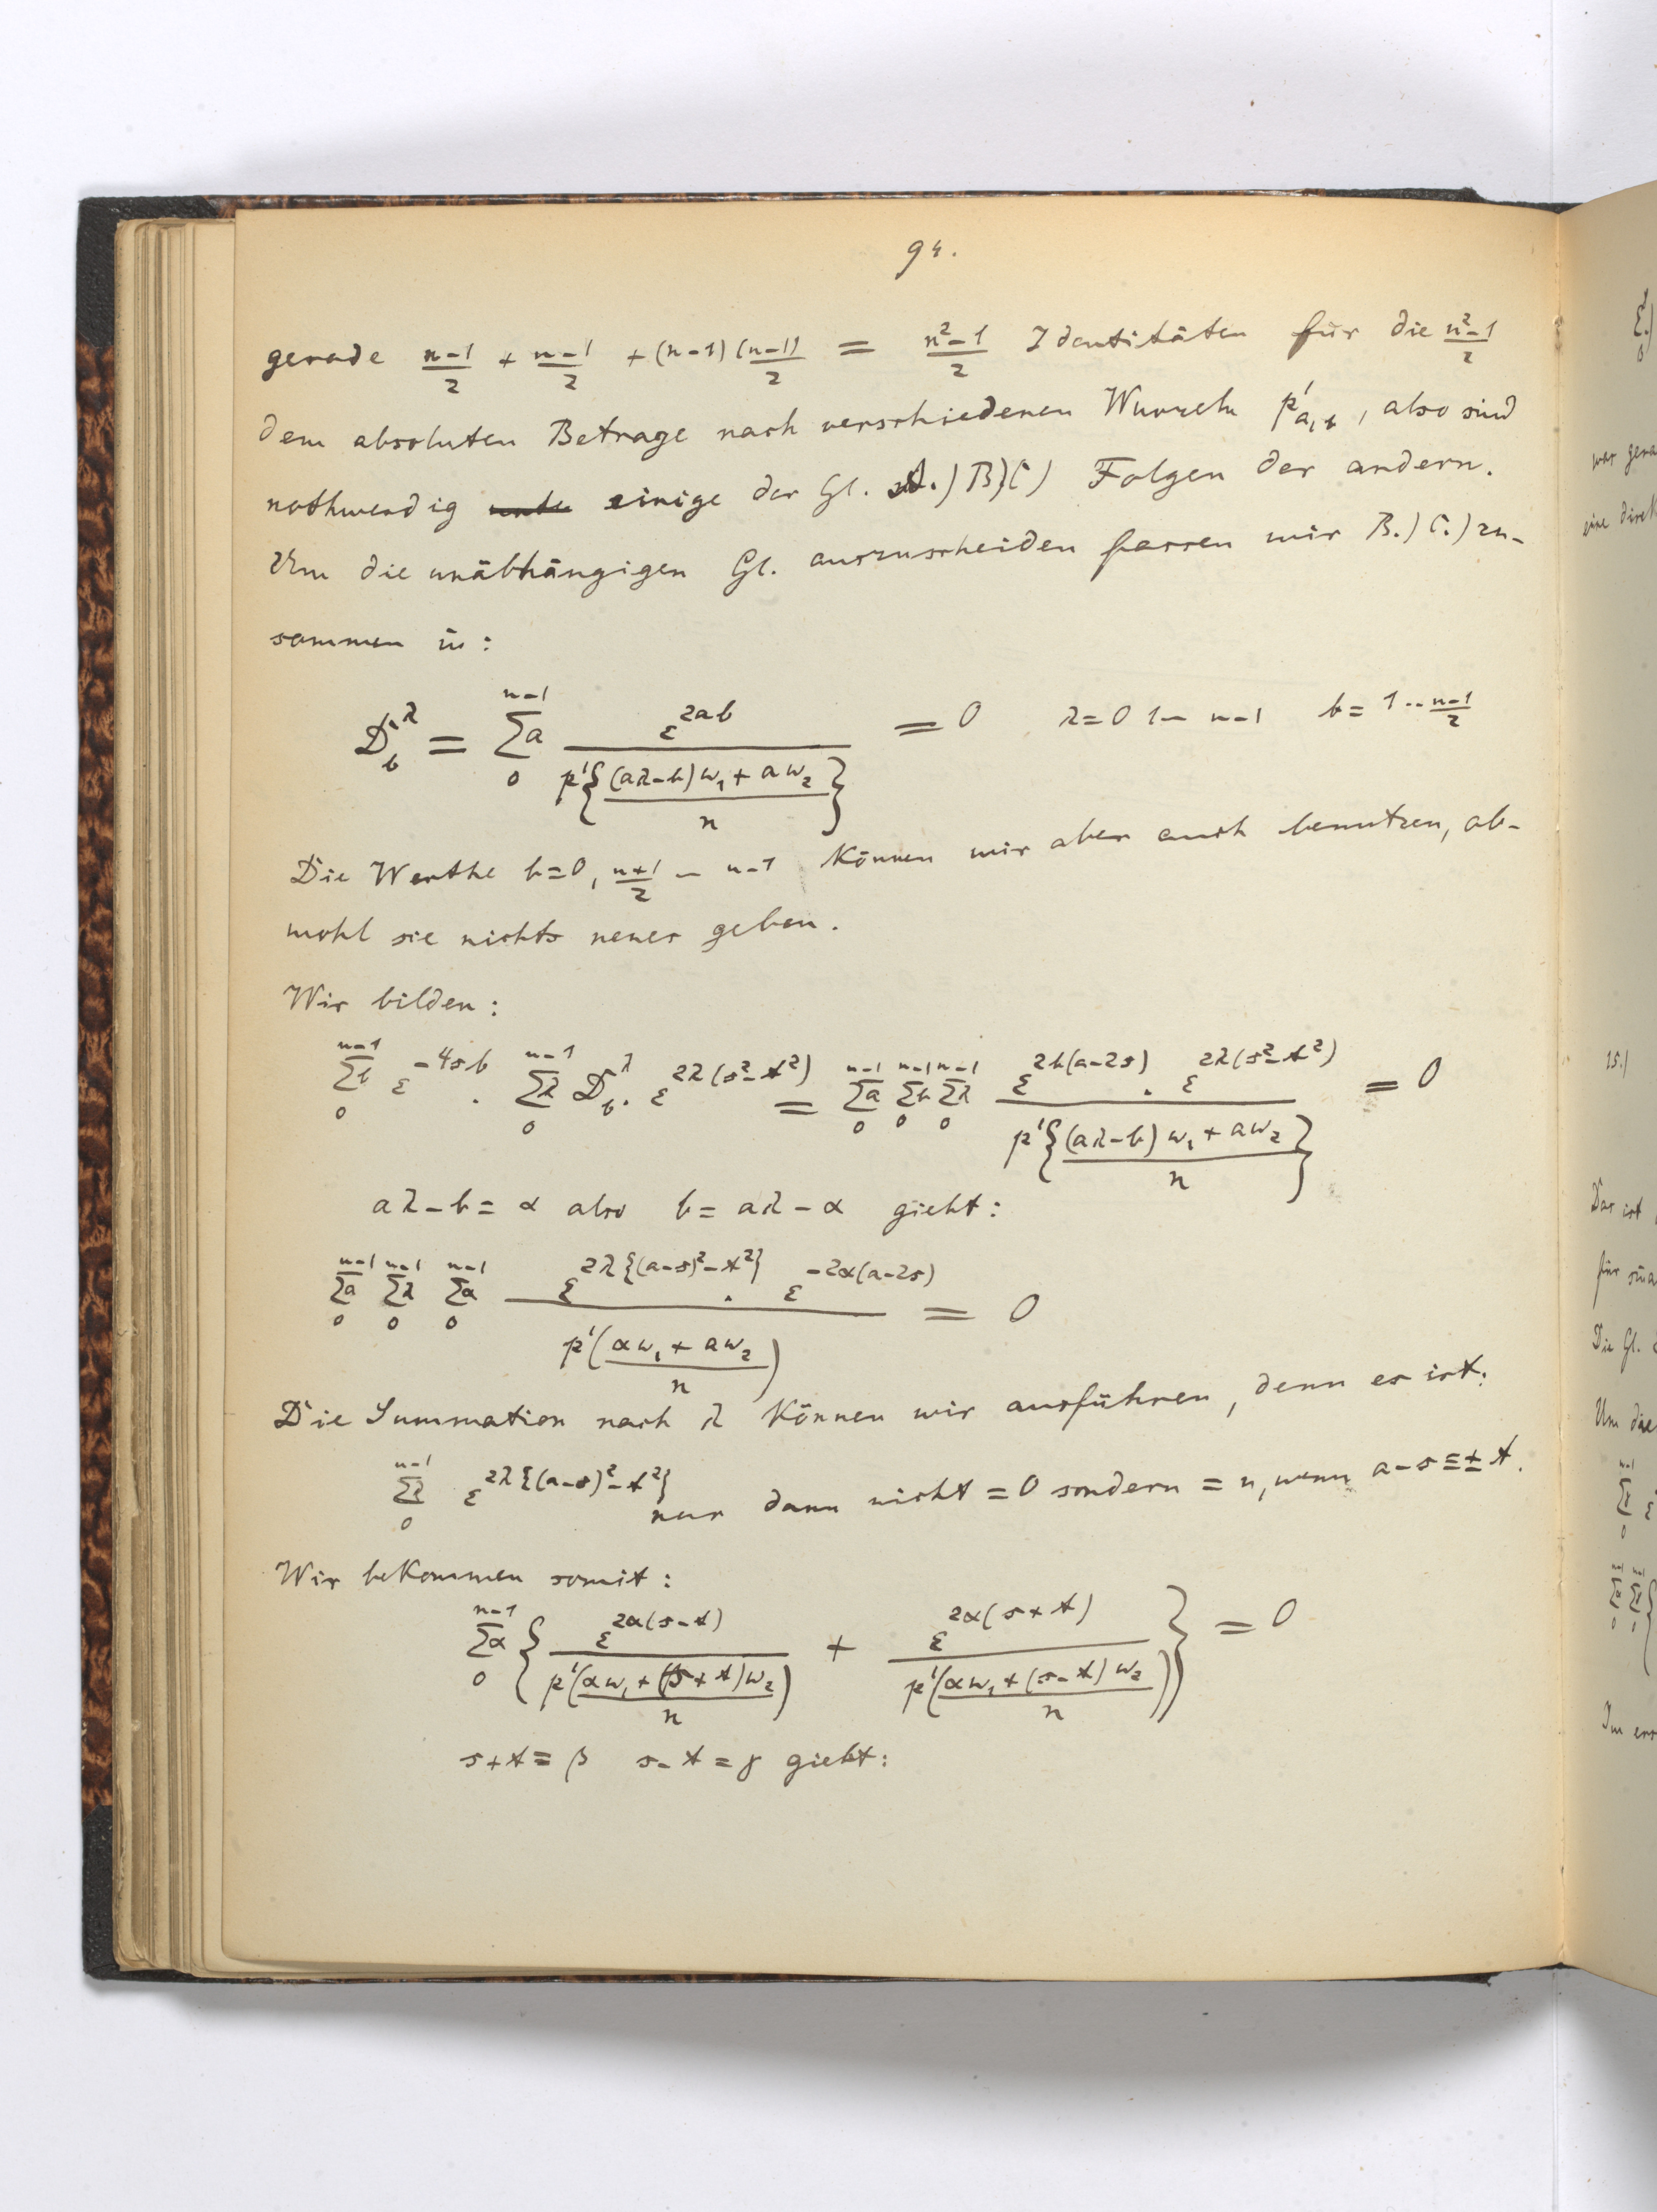 94.
gerade (n-1)/2 + (n-1)/2 + (n-1)(n-1)/2 = (n²-1)/2 Identitäten für die (n²-1)/2
dem absoluten Betrage nach verschiedenen Wurzeln p'_{a,b}, also sind
nothwendig einige der Gl. A.) B) C) Folgen der andern.
Um die unäbhängigen Gl. auszuscheiden fassen wir B.) C.) zu-
sammen in:
D_b^λ = Σa_0^{n-1} ε^{2ab} / p'{((aλ-b)ω₁ + aω₂)/n} = 0 λ = 0 1 – n-1 b = 1 ·· (n-1)/2
Die Werthe b=0, (n+1)/2 – n-1 können wir aber auch benutzen, ob-
wohl sie nichts neues geben.
Wir bilden:
Σb_0^{n-1} ε^{-4sb} · Σλ_0^{n-1} D_b^λ · ε^{2λ(s²-t²)} = Σa_0^{n-1} Σb_0^{n-1} Σλ_0^{n-1} ε^{2b(a-2s)} · ε^{2λ(s²-t²)} / p'{((aλ-b)ω₁ + aω₂)/n} = 0
aλ-b = α also b = aλ-α giebt:
Σa_0^{n-1} Σλ_0^{n-1} Σα_0^{n-1} ε^{2λ{(a-s)²-t²}} · ε^{-2α(a-2s)} / p'((αω₁ + aω₂)/n) = 0
Die Summation nach λ können wir ausführen, denn es ist:
Σλ_0^{n-1} ε^{2λ{(a-s)²-t²}} nur dann nicht = 0 sondern = n, wenn a-s ≡ ± t.
Wir bekommen somit:
Σα_0^{n-1} { ε^{2α(s-t)} / p'((αω₁ + (s+t)ω₂)/n) + ε^{2α(s+t)} / p'((αω₁ + (s-t)ω₂)/n) } = 0
s+t = β s-t = γ giebt:
war gera
eine direk
15.)
Das ist
für
Die Gl.
Um die
Im